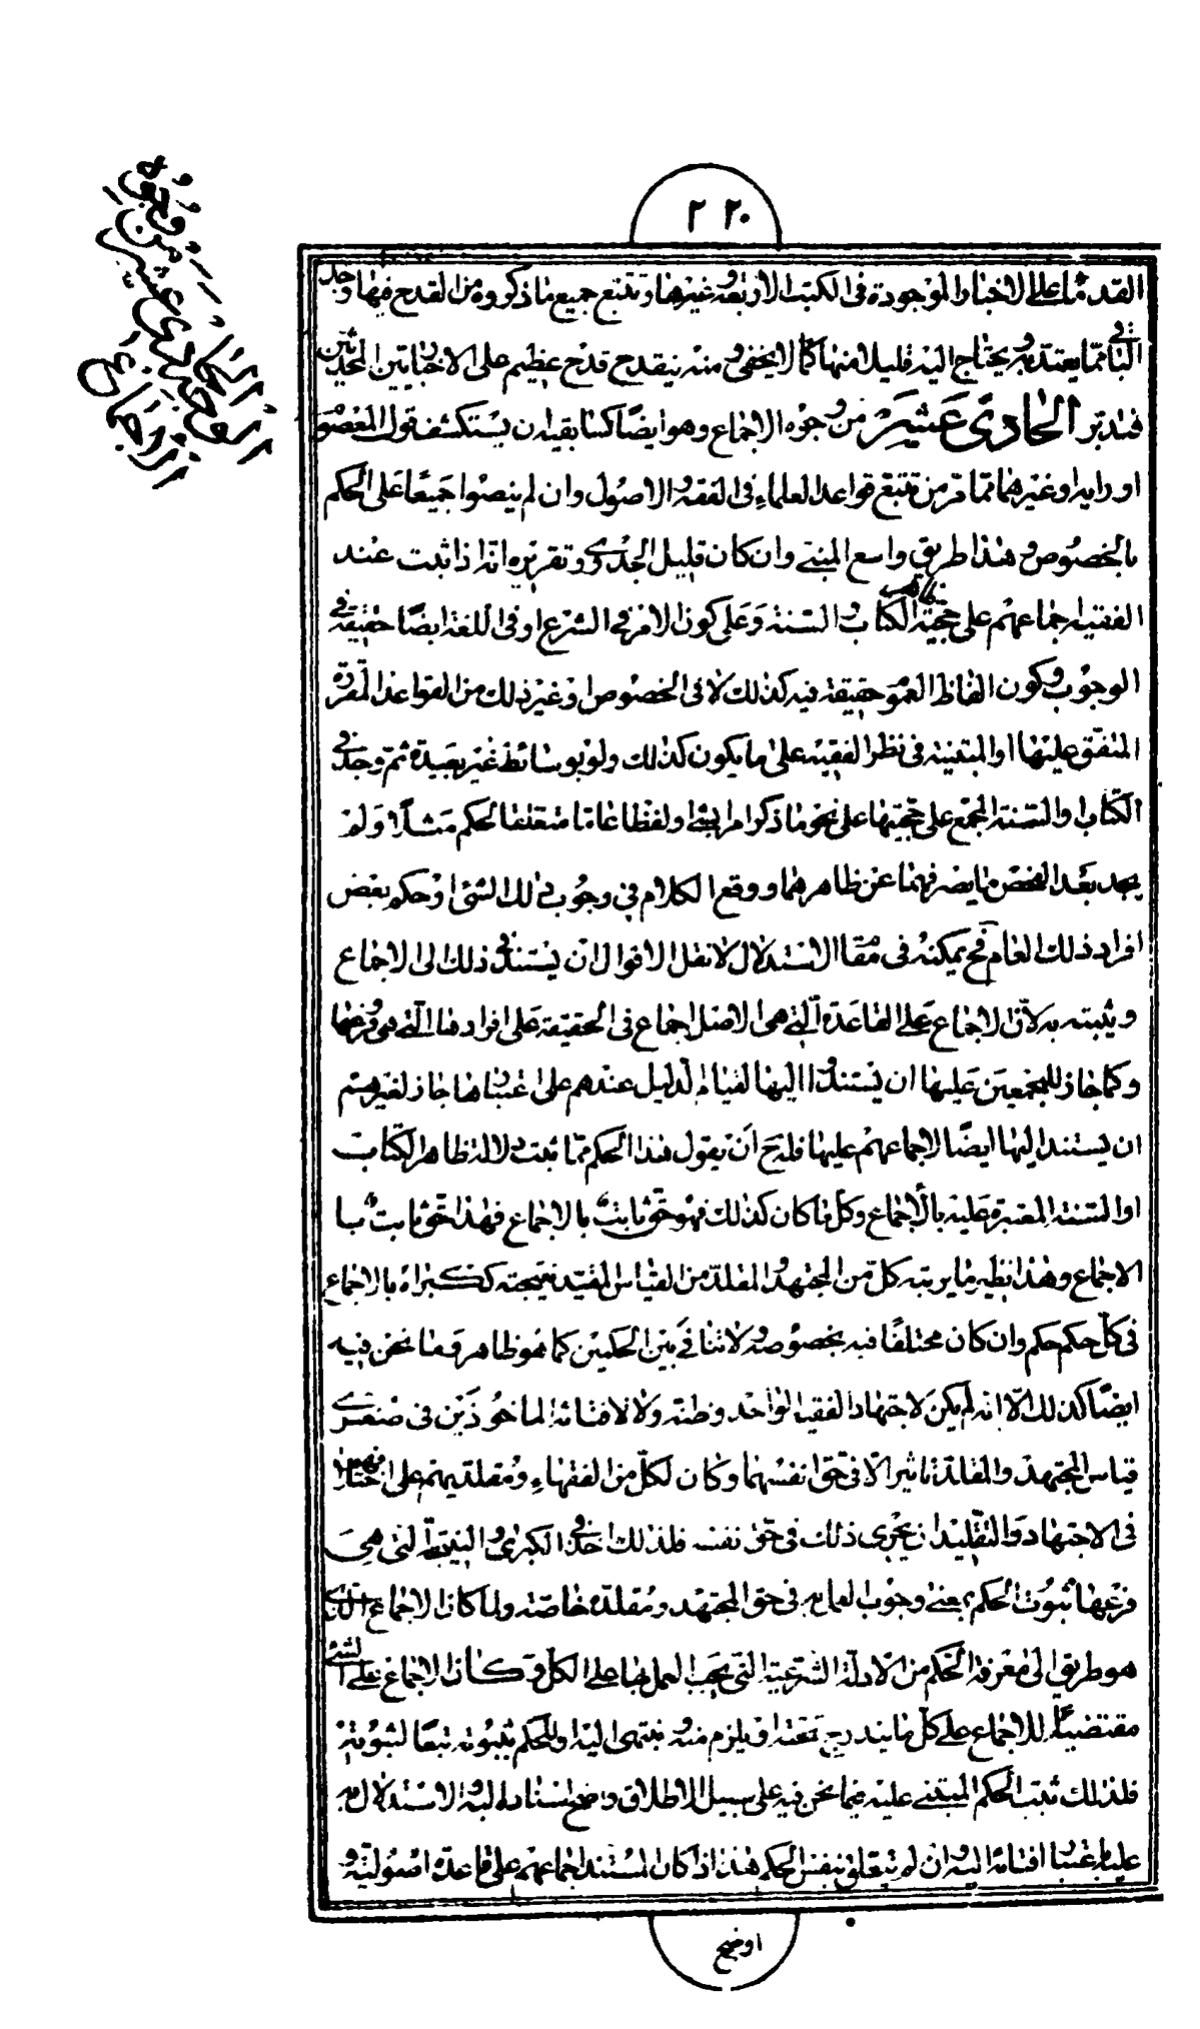 ٢٢٠
الوجه الحادي عشر من وجوه الاجماع
القدماء على الاخبار الموجودة في الكتب الاربعة وغيرها وتتبع جميع ما ذكروه من القدح فيها وجد
الباقي مما يعتد به ويحتاج اليه قليلا منها كما لا يخفى ومنه ينقدح قدح عظيم على الاخباريين المحدثين
فتدبر الحادي عشر من وجوه الاجماع وهو ايضا كسابقيه ان يستكشف قول المعصوم
او رايه او غيرهما مما مر من تتبع قواعد العلماء في الفقه والاصول وان لم ينصوا جميعا على الحكم
بالخصوص وهذا طريق واسع المبنى وان كان قليل الجدوى وتقريره انه اذا ثبت عند
الفقيه اجماعهم على حجية ظاهر الكتاب والسنة وعلى كون الامر في الشرع او في اللغة ايضا حقيقة في
الوجوب وكون الفاظ العموم حقيقة فيه كذلك لا في الخصوص او غير ذلك من القواعد المقررة
المتفق عليها او المبتنية في نظر الفقيه على ما يكون كذلك ولو بوسائط غير بعيدة ثم وجد في
الكتاب والسنة المجمع على حجيتها على نحو ما ذكر امرا بشئ او لفظا عاما متعلقا لحكم مثلا ولم
يجد بعد الفحص ما يصرفهما عن ظاهرهما ووقع الكلام في وجوب ذلك الشئ او حكم بعض
افراد ذلك العام فح يمكنه في مقام الاستدلال لا نقل الاقوال ان يستند في ذلك الى الاجماع
ويثبته به لان الاجماع على القاعدة التي هي الاصل اجماع في الحقيقة على افرادها التي هي فرعها
وكما جاز للمجمعين عليها ان يستندوا اليها لقيام الدليل عندهم على اعتبارها جاز لغيرهم
ان يستند اليها ايضا لاجماعهم عليها فله ح ان يقول هذا الحكم مما ثبت دلالة ظاهر الكتاب
او السنة المعتبرة عليه بالاجماع وكل ما كان كذلك فهو حق ثابت بالاجماع فهذا حق ثابت با
الاجماع وهذا نظير ما يرتبه كل من المجتهد والمقلد من القياس المفيد نتيجته ككبراه بالاجماع
في كل حكم حكم وان كان مختلفا فيه بخصوصه ولا تنافي بين الحكمين كما هو ظاهر وما نحن فيه
ايضا كذلك الا انه لم يكن لاجتهاد الفقيه الواحد وظنه ولا لافتائه الماخوذين في صغرى
قياس المجتهد والمقلد تاثير الا في حق انفسهما وكان لكل من الفقهاء ومقلديهم على اختلافهم
في الاجتهاد والتقليد ان يجري ذلك في حق نفسه فلذلك اخذ في الكبرى والنتيجة التي هي
فرعها ثبوت الحكم بمعنى وجوب العمل به في حق المجتهد ومقلده خاصة ولما كان الاجماع الذي
هو طريق الى معرفة الحكم من الادلة الشرعية التي يجب العمل بها على الكل وكان الاجماع على الشئ
مقتضيا للاجماع على كل ما يندرج تحته او يلزم منه وينتمي اليه والحكم بثبوته تبعا لثبوته
فلذلك ثبت الحكم المبتنى عليه فيما نحن فيه على سبيل الاطلاق واتضح استناده اليه والاستدلال به
عليه باعتبار افتائه اليه وان لم يتعلق بنفس الحكم هذا اذا كان المستند اجماعهم على قاعدة اصولية و
اوضح